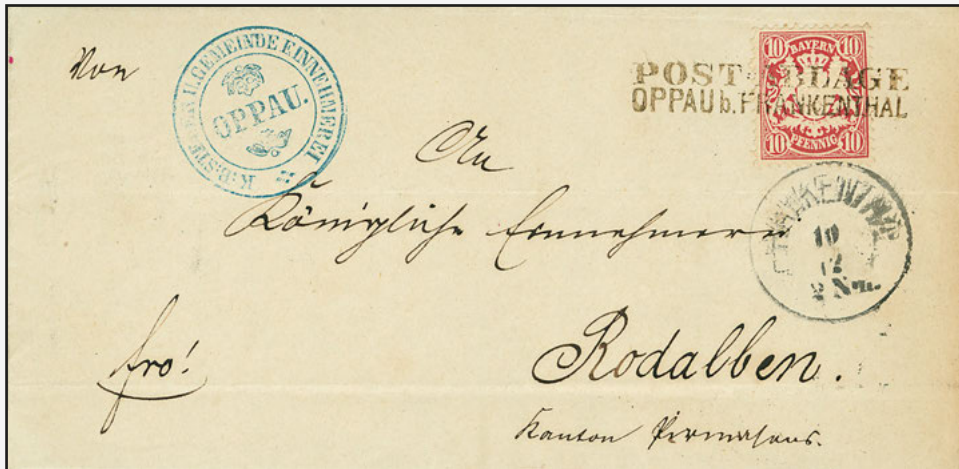 Von
K. B. STEUER U. GEMEINDE EINNEHMEREI
OPPAU.
POSTABLAGE
OPPAU b. FRANKENTHAL
10 BAYERN 10
10 PFENNIG 10
An
Königliche Einnehmerei
FRANKENTHAL
10
12
2 Nm.
fro!
Rodalben.
Kanton Pirmasens.